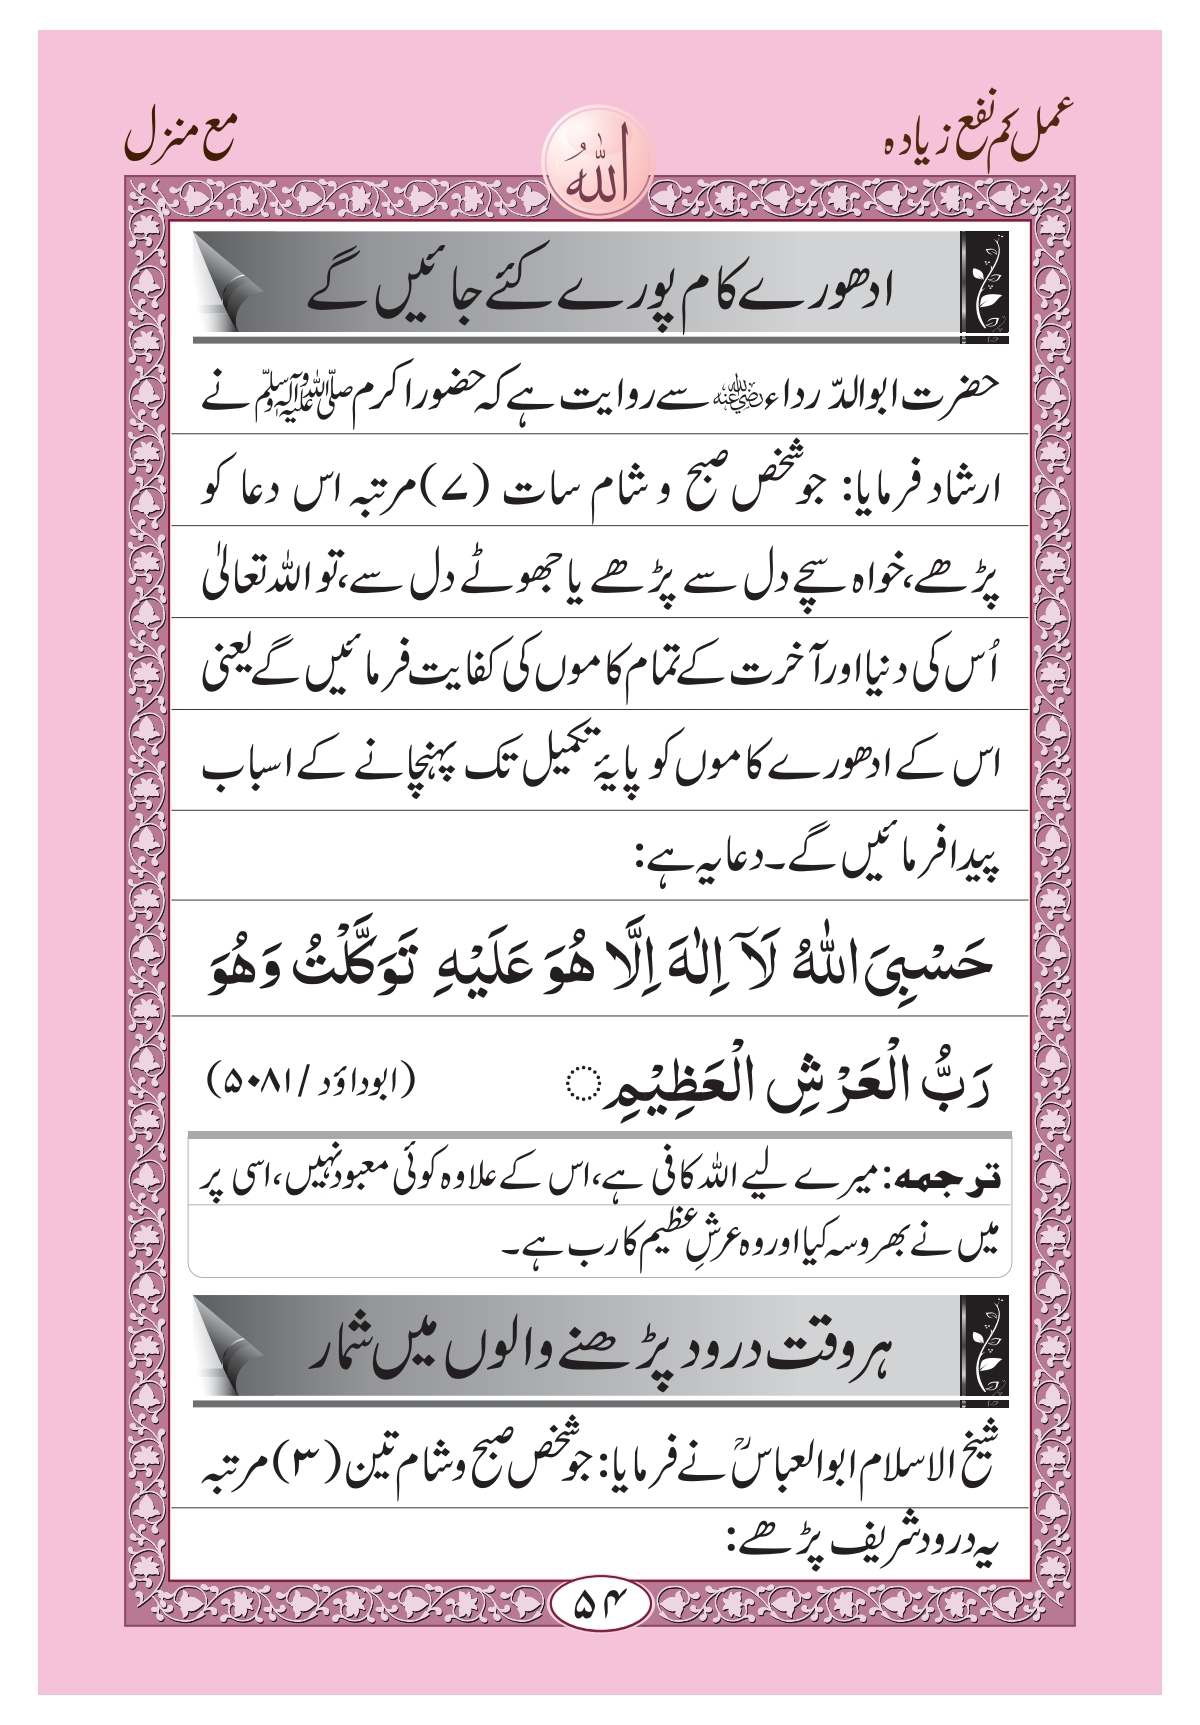 عمل کم نفع زیادہ
مع منزل
اللّٰہُ
ادھورے کام پورے کئے جائیں گے
حضرت ابوالدّرداء رضی اللہ عنہ سے روایت ہے کہ حضور اکرم صلی اللہ علیہ وآلہ وسلم نے
ارشاد فرمایا: جو شخص صبح و شام سات (۷) مرتبہ اس دعا کو
پڑھے، خواہ سچے دل سے پڑھے یا جھوٹے دل سے، تو اللہ تعالیٰ
اُس کی دنیا اور آخرت کے تمام کاموں کی کفایت فرمائیں گے یعنی
اس کے ادھورے کاموں کو پایۂ تکمیل تک پہنچانے کے اسباب
پیدا فرمائیں گے۔ دعا یہ ہے:
حَسْبِیَ اللّٰہُ لَآ اِلٰہَ اِلَّا ھُوَ عَلَیْہِ تَوَکَّلْتُ وَھُوَ
رَبُّ الْعَرْشِ الْعَظِیْمِ ۝
(ابوداؤد / ۵۰۸۱)
ترجمہ: میرے لیے اللہ کافی ہے، اس کے علاوہ کوئی معبود نہیں، اسی پر
میں نے بھروسہ کیا اور وہ عرشِ عظیم کا رب ہے۔
ہر وقت درود پڑھنے والوں میں شمار
شیخ الاسلام ابوالعباسؒ نے فرمایا: جو شخص صبح و شام تین (۳) مرتبہ
یہ درود شریف پڑھے:
۵۴